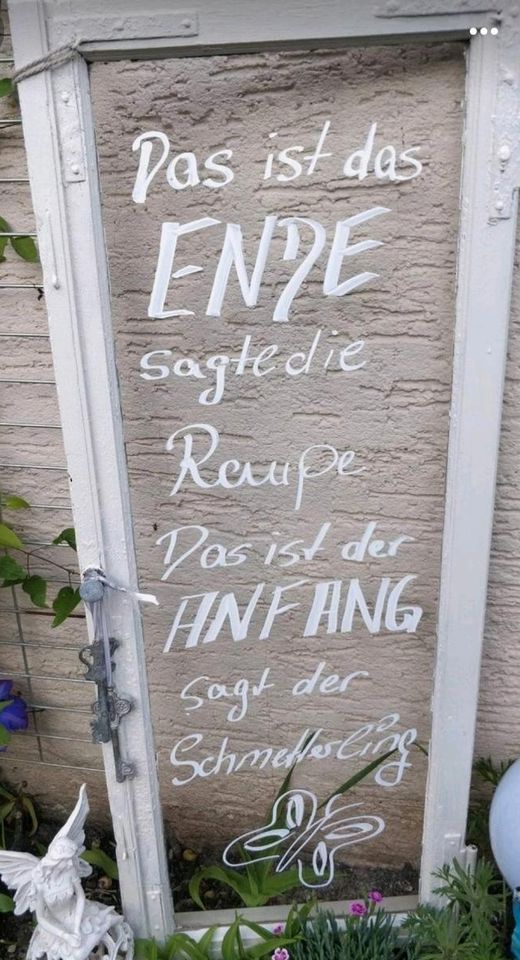 Das ist das
ENDE
sagte die
Raupe
Das ist der
ANFANG
sagt der
Schmetterling